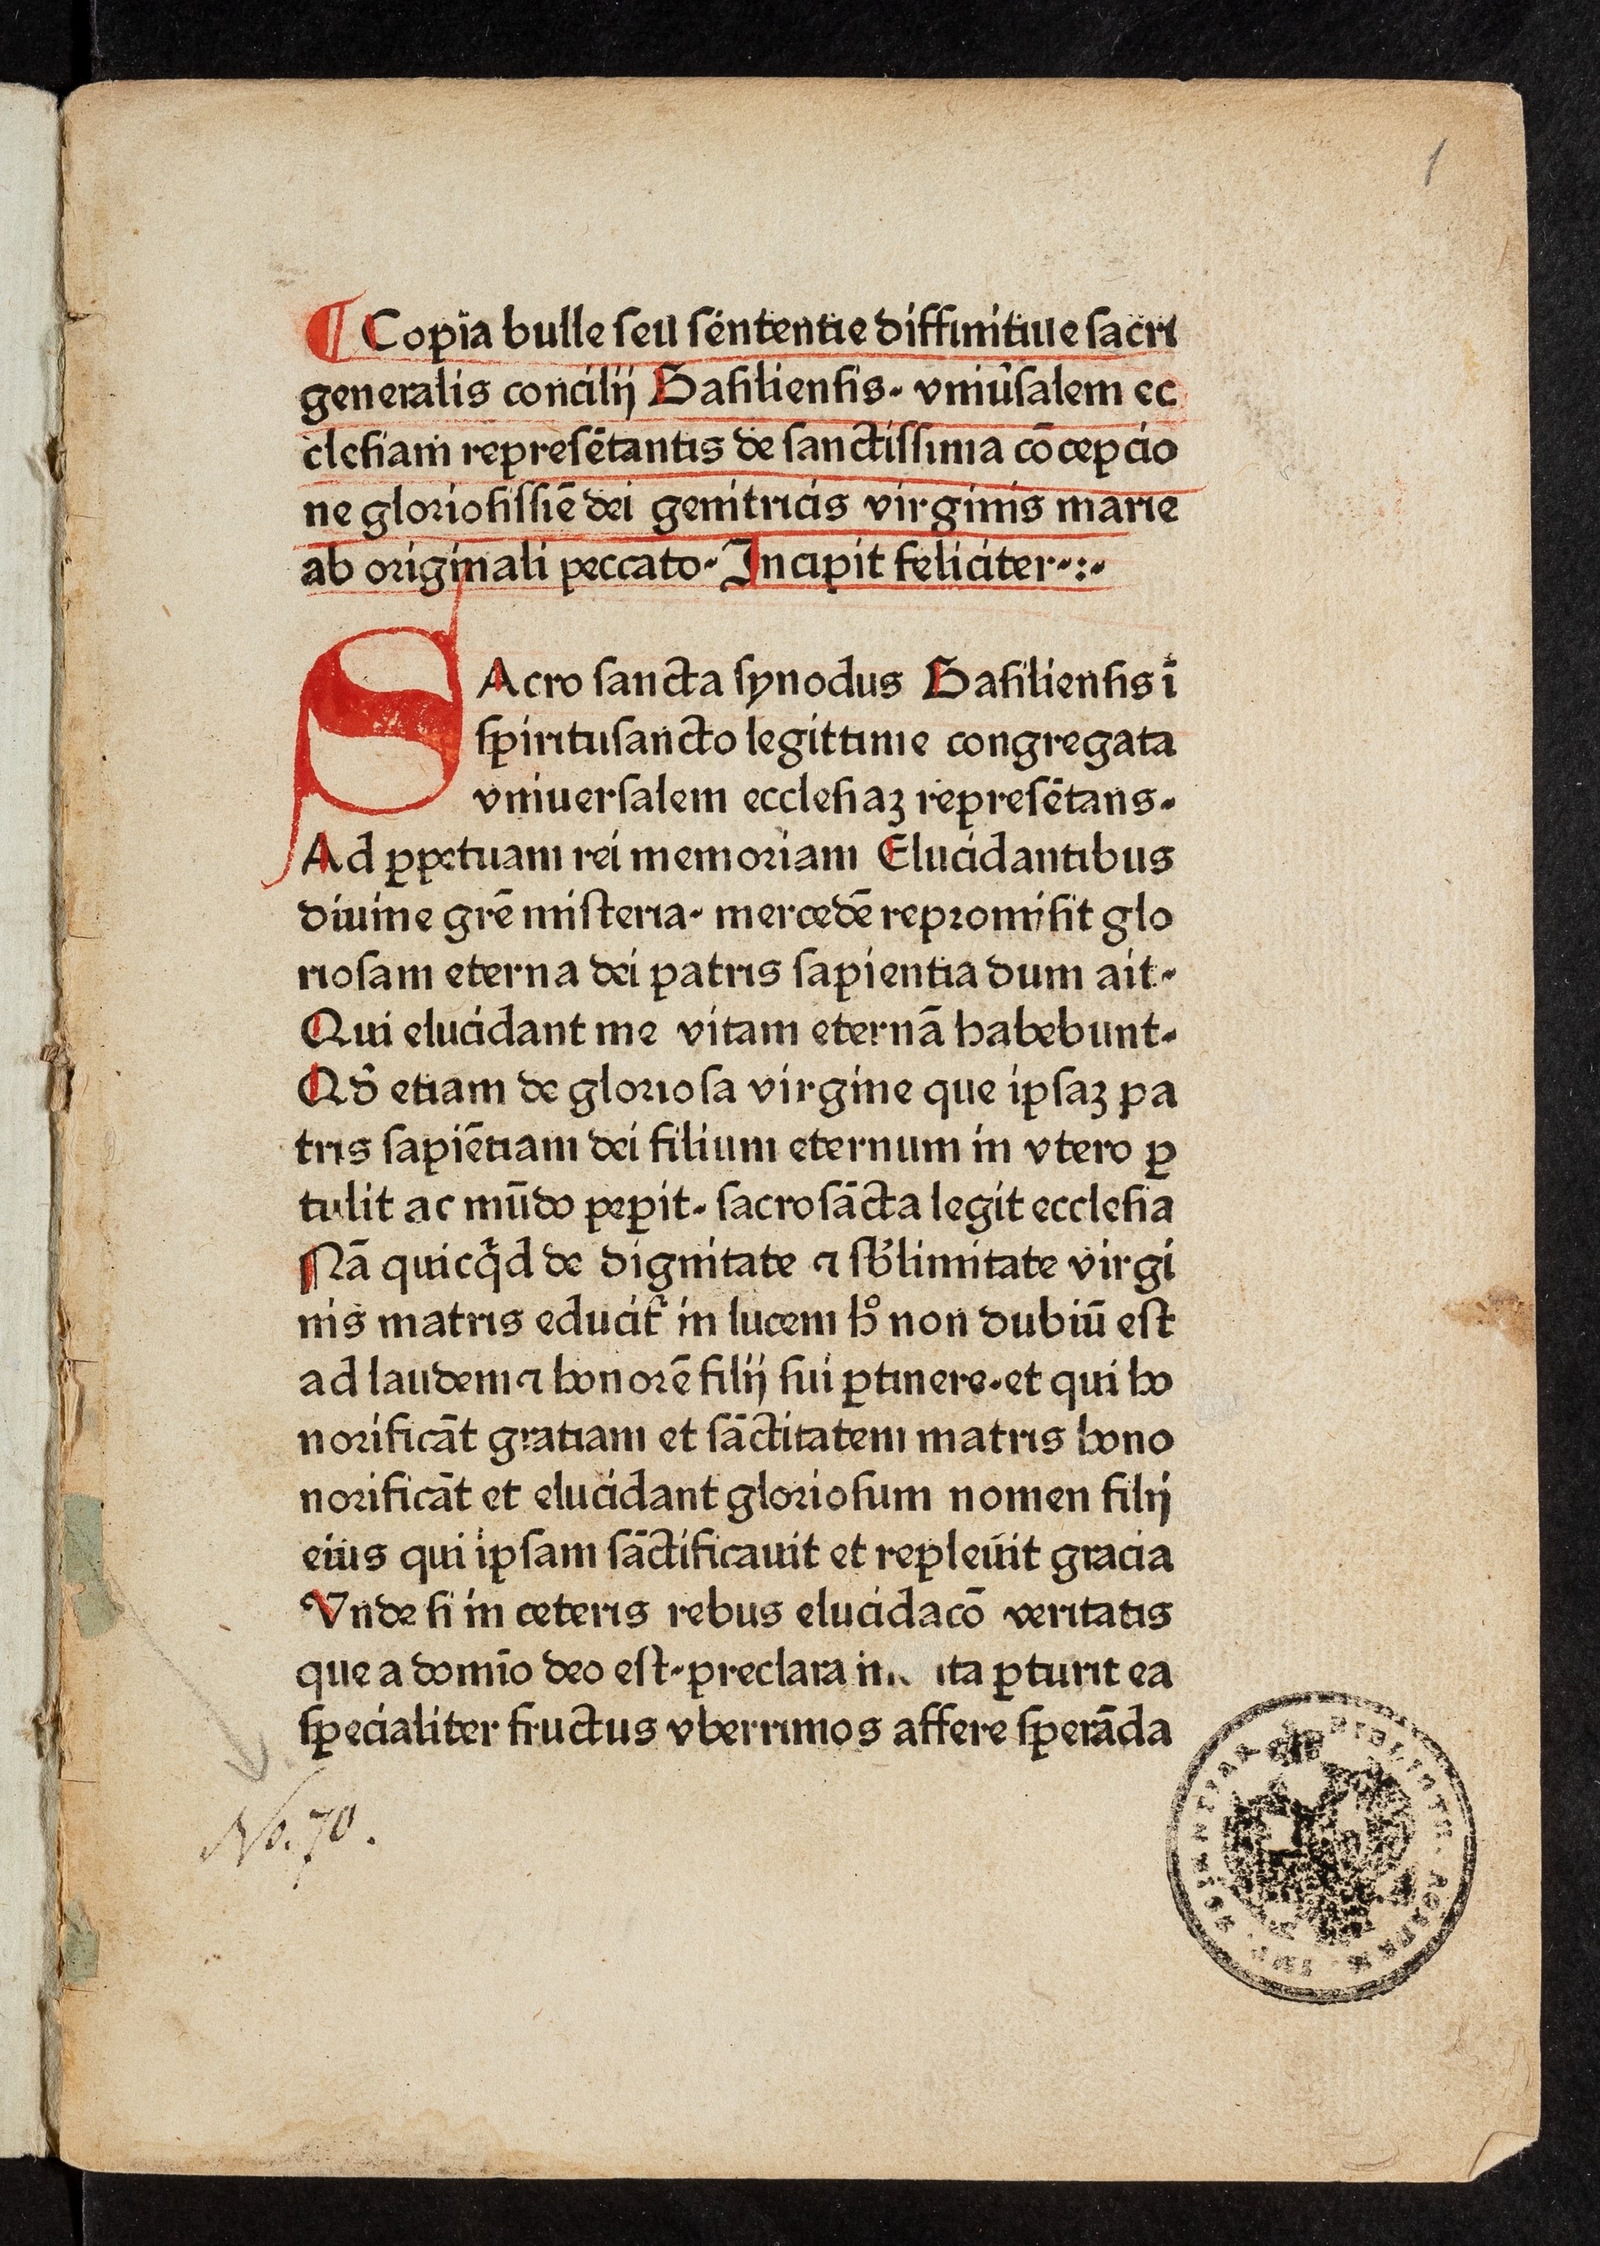 1
¶ Copia bulle seu sententie diffinitiue sacri
generalis concilij Basiliensis. vniũsalem ec
clesiam represẽtantis de sanctissima cõcepcio
ne gloriosissiẽ dei genitricis virginis marie
ab originali peccato. Incipit feliciter.:.
SAcro sancta synodus Basiliensis ĩ
spiritusancto legittime congregata
vniuersalem ecclesiaꝫ represẽtans.
Ad ꝑpetuam rei memoriam Elucidantibus
diuine grẽ misteria. mercedẽ repromisit glo
riosam eterna dei patris sapientia dum ait.
Qui elucidant me vitam eternã habebunt.
Qď etiam de gloriosa virgine que ipsaꝫ pa
tris sapiẽtiam dei filium eternum in vtero ꝑ
tulit ac mũdo peperit. sacrosãcta legit ecclesia
Nã quicq̇d de dignitate ⁊ sb̓limitate virgi
nis matris educit᷑ in lucem hͦ non dubiũ est
ad laudem ⁊ honorẽ filij sui ꝑtinere. et qui ho
norificãt gratiam et sãctitatem matris hono
norificãt et elucidant gloriosum nomen filij
eius qui ipsam sãctificauit et repleuit gracia
Vnde si in ceteris rebus elucidacõ veritatis
que a domĩo deo est. preclara ꝑturit ea
specialiter fructus vberrimos affere sperãda
No. 70.